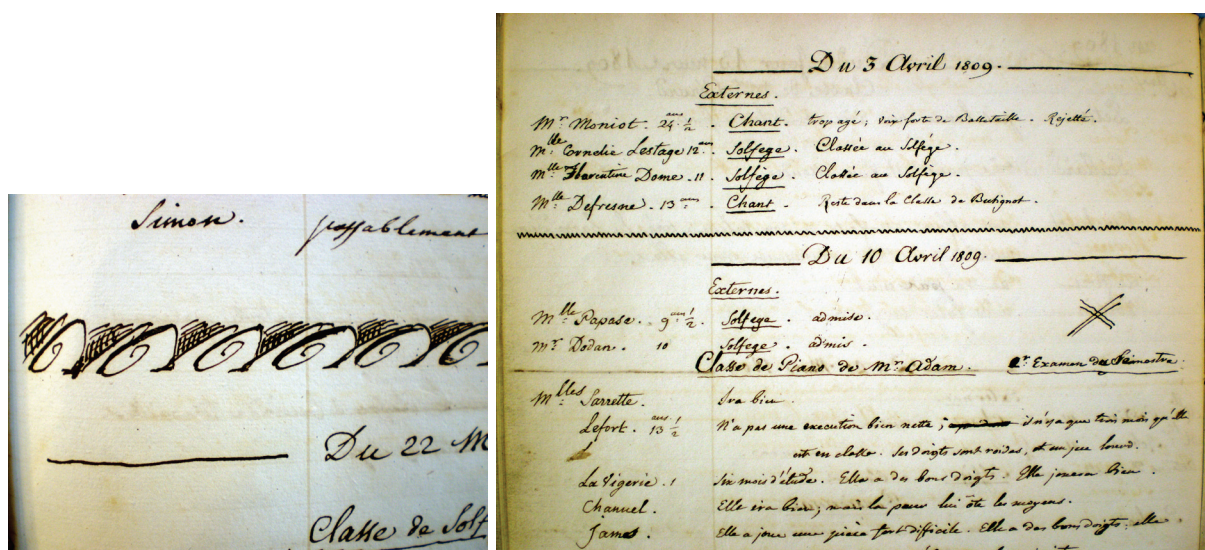 Simon. passablement
Du 22 M
Classe de Solf
Du 3 Avril 1809.
Externes.
Mr. Moniot. 24 ans ½. Chant. trop agé; voix forte de Bassetaille. Rejetté.
Mlle Cornelie Lestage 12 ans. Solfege. Classée au Solfége.
Mlle Florentine Dome. 11. Solfège. Classée au Solfége.
Mlle Defresne. 13 ans. Chant. Reste dans la Classe de Butignot.
Du 10 Avril 1809.
Externes.
Mlle Papase. 9 ans ½. Solfege. admise.
Mr. Dodan. 10 Solfege. admis.
Classe de Piano de Mr. Adam. 1er Examen du Semestre.
Mlles Sarrette. Ira bien.
Lefort. 13 ans ½ N'a pas une execution bien nette; il n'y a que trois mois qu'elle
est en classe. Ses doigts sont roides, et un jeu lourd.
La Vigerie. 1 Six mois d'étude. Elle a des bons doigts. Elle jouera bien.
Chanuel. Elle ira bien; mais la peur lui ôte les moyens.
James. Elle a joué une pièce fort difficile. Elle a des bons doigts; elle